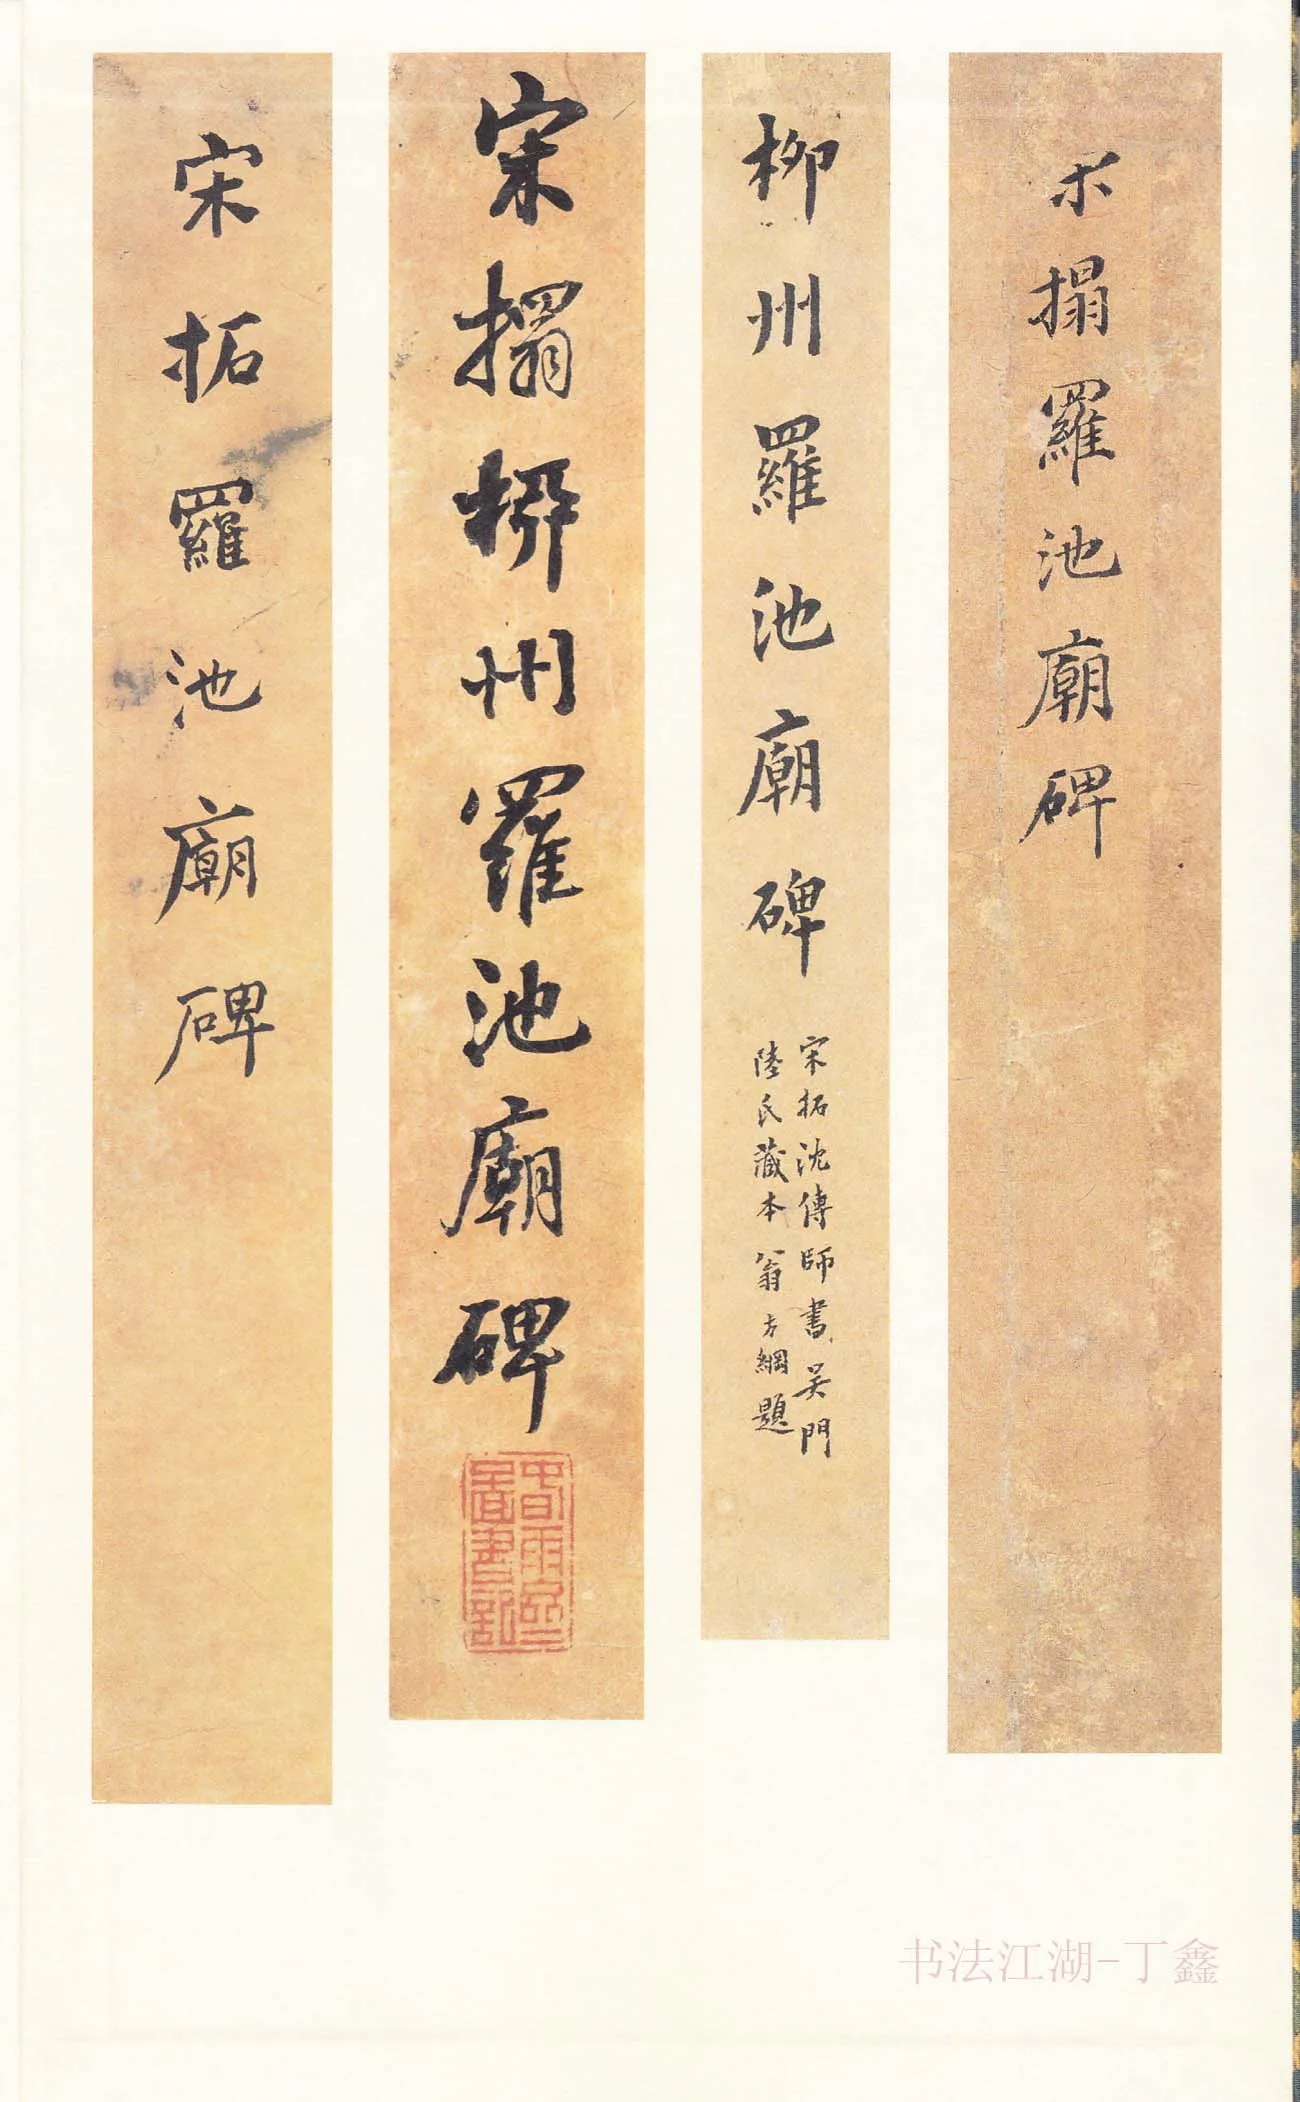 宋搨羅池廟碑
柳州羅池廟碑
宋拓沈傳師書吴門
陸氏藏本翁方綱題
宋搨桺州羅池廟碑
春雨樓
圖書記
宋拓羅池廟碑
书法江湖-丁鑫